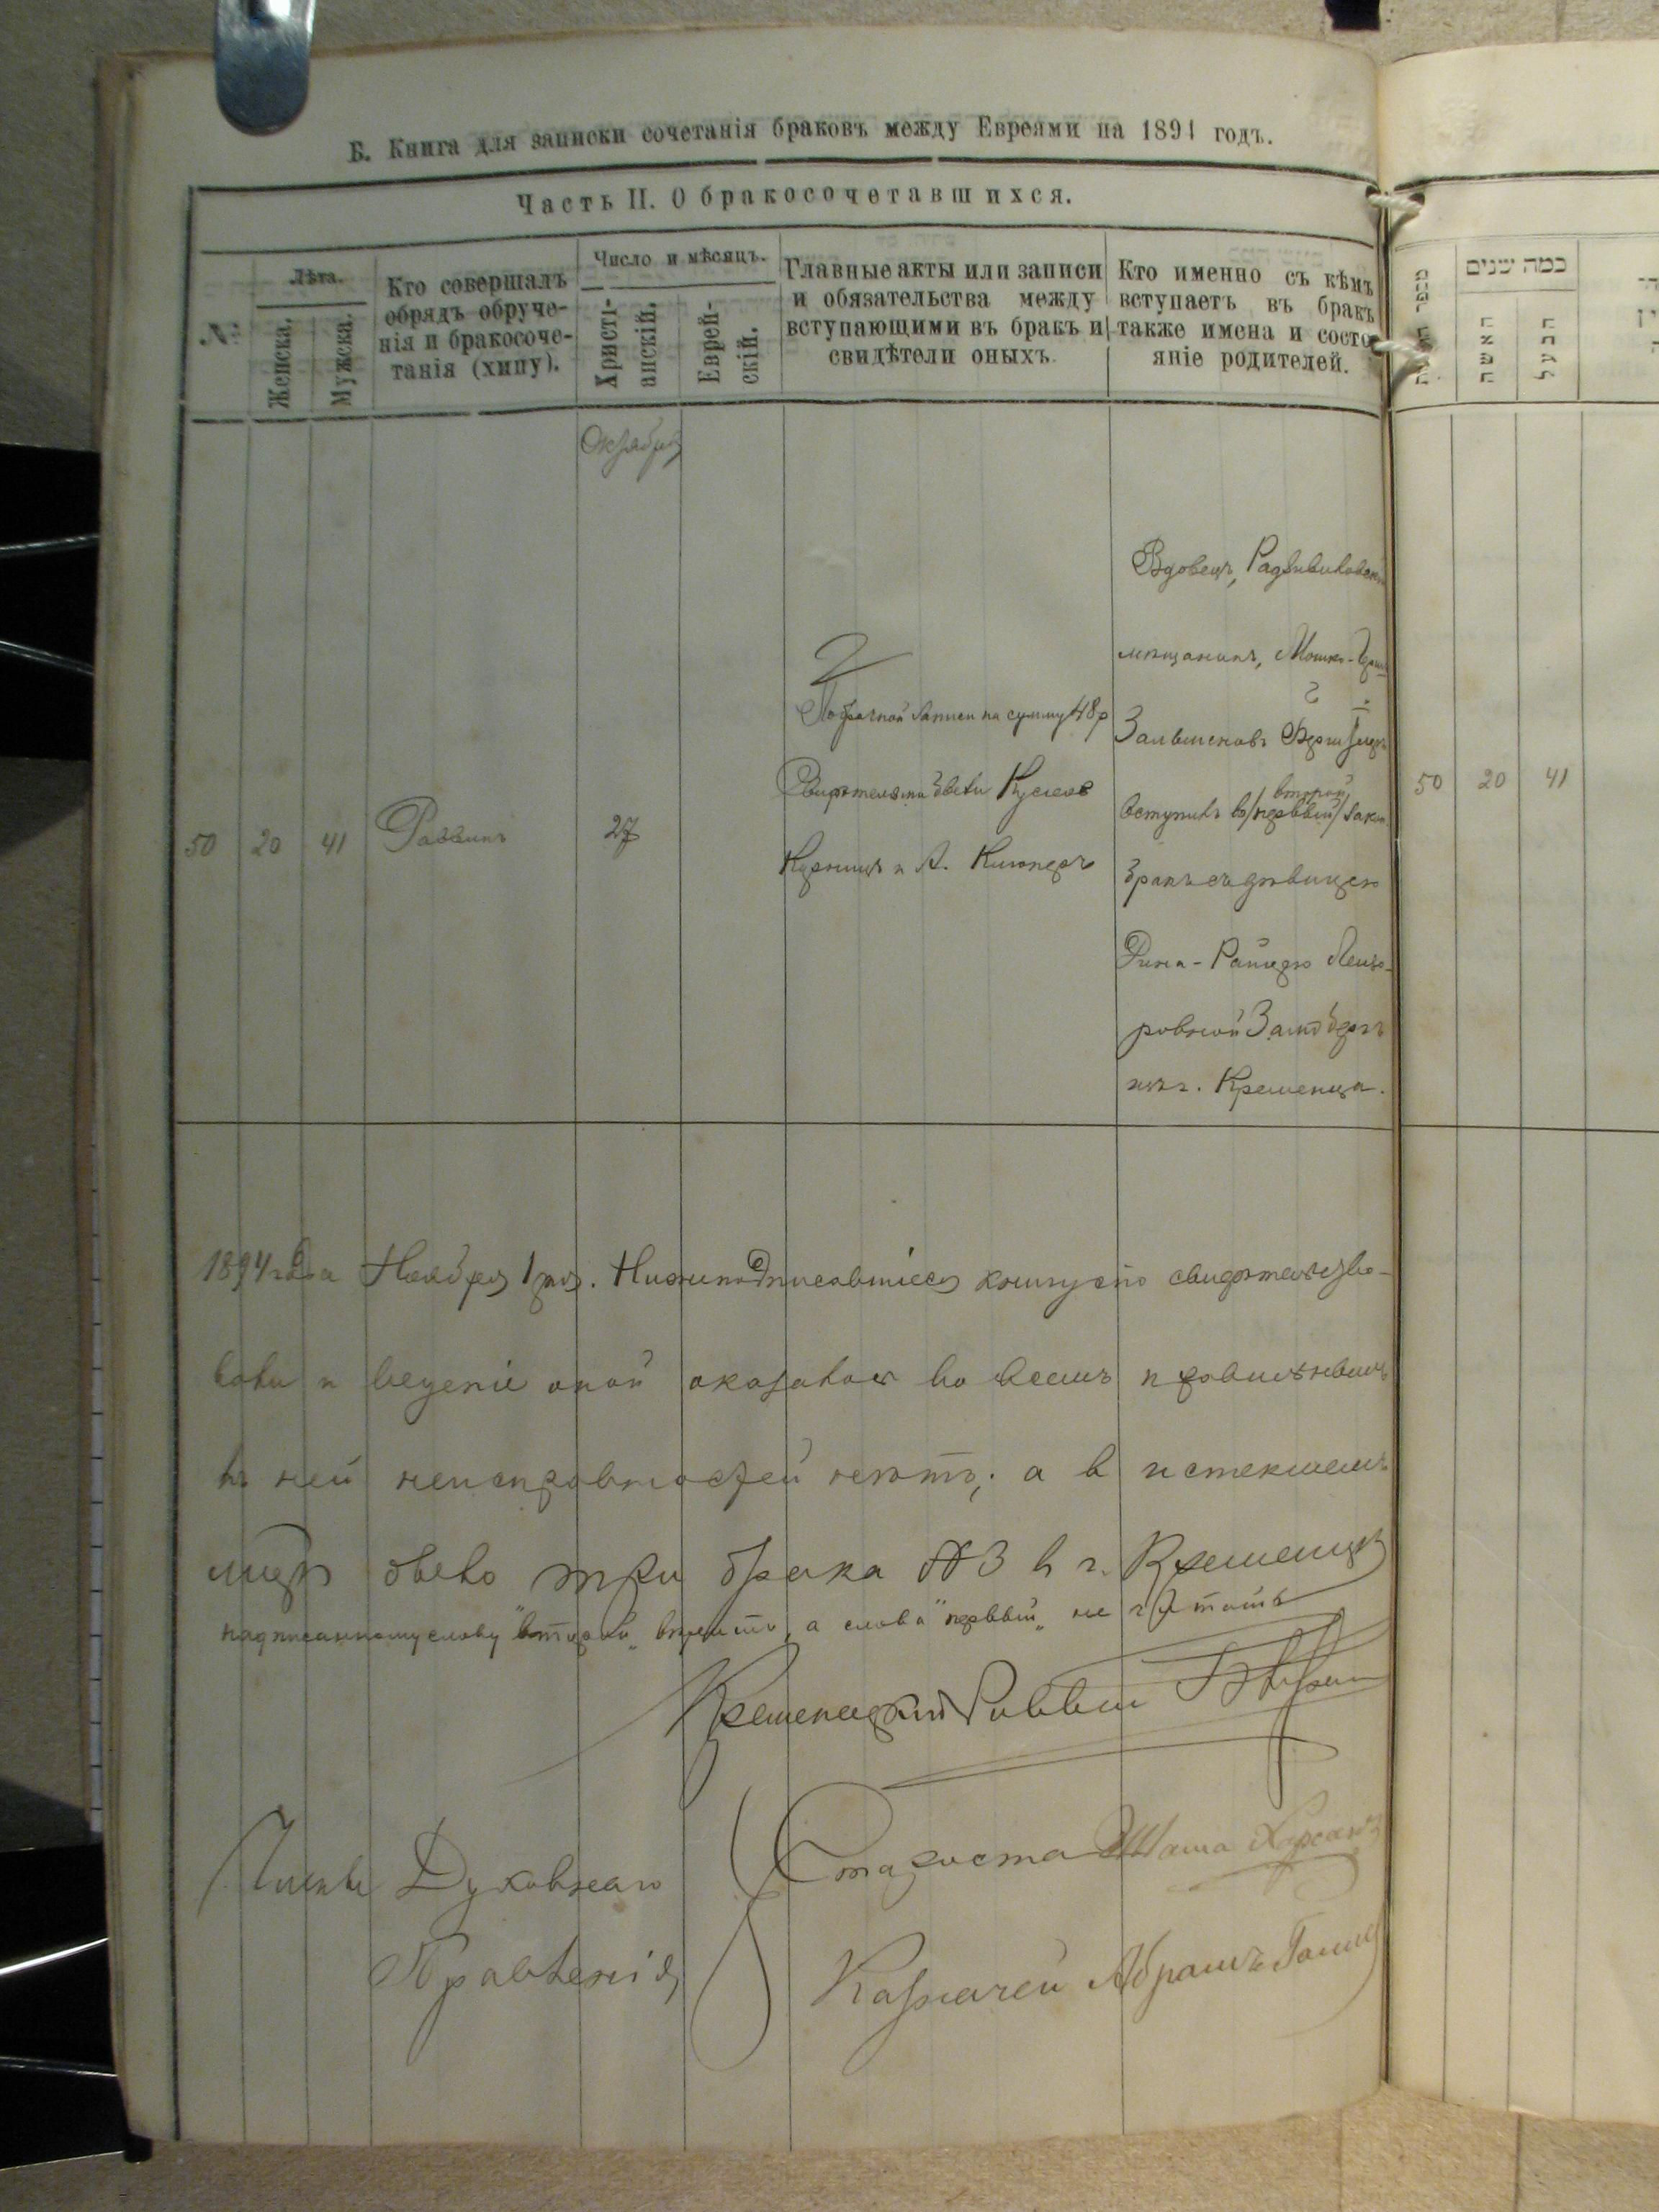 Б. Книга для записки сочетанія браковъ между Евреями на 1894 годъ.
Часть II. О бракосочетавшихся.
№
Лѣта.
Женска.
Мужска.
Кто совершалъ
обрядъ обруче-
нія и бракосоче-
танія (хипу).
Число и мѣсяцъ.
Христі-
анскій.
Еврей-
скій.
Главные акты или записи
и обязательства между
вступающими въ бракъ и
свидѣтели оныхъ.
Кто именно съ кѣмъ
вступаетъ въ бракъ
также имена и состо-
яніе родителей.
כמה שנים
האשה
הבעל
Октября
50 20 41 Раввинъ 27
2
записи на сумму 48 р
Свидѣтели
и А.
Вдовецъ, Радзивиловскій
мѣщанинъ, Мошко-
вступилъ во /первый/ второй закон.
бракъ съ дѣвицею
Рейзею Лейзо-
ровной
изъ г. Кременца.
50 20 41
1894 года Ноября 1 дня. Нижеподписавшіеся книгу сію свидѣтельство-
вали и веденіе оной оказалось во всемъ правильнымъ
въ ней неисправностей нѣтъ; а в истекшемъ
мцѣ было три брака №3 в г. Кременцѣ
надписанному слову "второй" вѣрить, а слова "первый" не читать
Кременецкій Раввин
Члены Духовнаго
Правленія
Староста
Казначей Абрамъ